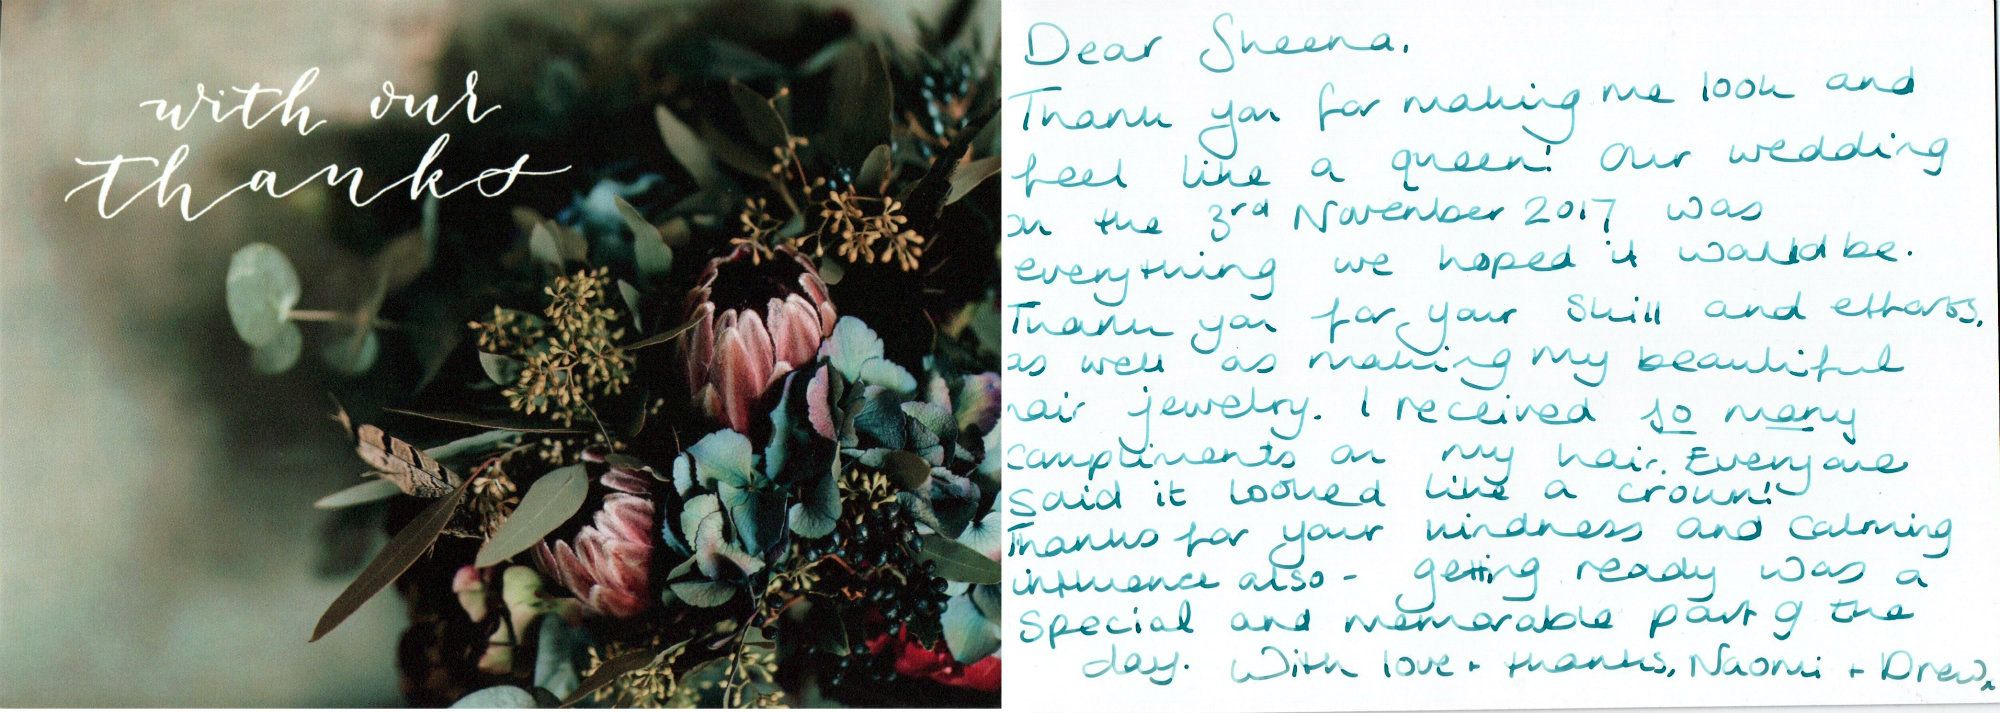 with our
thanks
Dear Sheena,
Thank you for making me look and
feel like a queen! Our wedding
on the 3rd November 2017 was
everything we hoped it would be.
Thank you for your skill and efforts,
as well as making my beautiful
hair jewelry. I received so many
compliments on my hair. Everyone
said it looked like a crown!
Thanks for your kindness and calming
influence also - getting ready was a
special and memorable part of the
day. With love + thanks, Naomi + Drew x